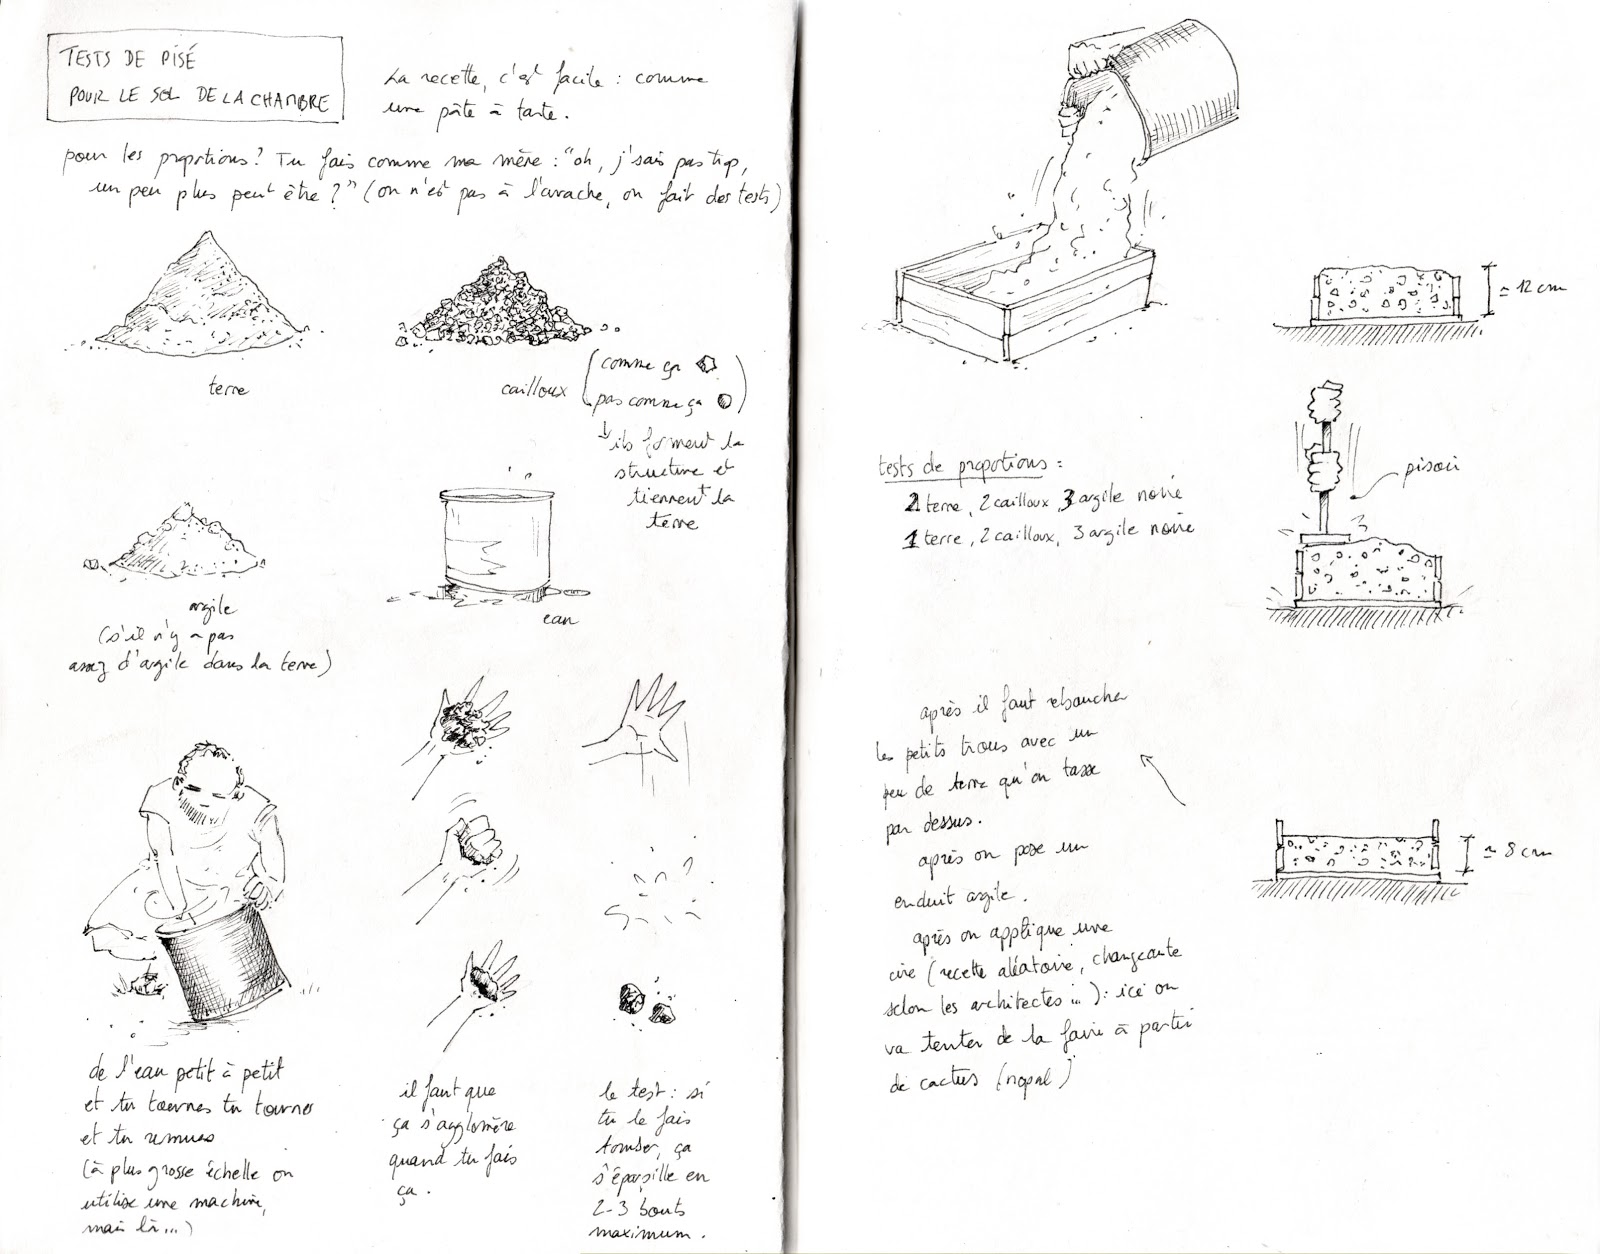 TESTS DE PISÉ
POUR LE SOL DE LA CHAMBRE
La recette, c'est facile : comme
une pâte à tarte.
pour les proportions ? Tu fais comme ma mère : "oh, j'sais pas trop,
un peu plus peut être ?" (on n'est pas à l'arrache, on fait des tests)
terre
cailloux
(comme ça
pas comme ça )
↓ ils forment la
structure et
tiennent la
terre
argile
(s'il n'y a pas
assez d'argile dans la terre)
eau
de l'eau petit à petit
et tu tournes tu tournes
et tu remues
(à plus grosse échelle on
utilise une machine,
mais là...)
il faut que
ça s'agglomère
quand tu fais
ça.
le test : si
tu le fais
tomber, ça
s'éparpille en
2-3 bouts
maximum.
≃ 12 cm
tests de proportions :
2 terre, 2 cailloux, 3 argile noire
1 terre, 2 cailloux, 3 argile noire
pisoir
après il faut reboucher
les petits trous avec un
peu de terre qu'on tasse
par dessus.
après on pose un
enduit argile.
après on applique une
cire (recette aléatoire, changeante
selon les architectes...) : ici on
va tenter de la faire à partir
de cactus (nopal)
≃ 8 cm